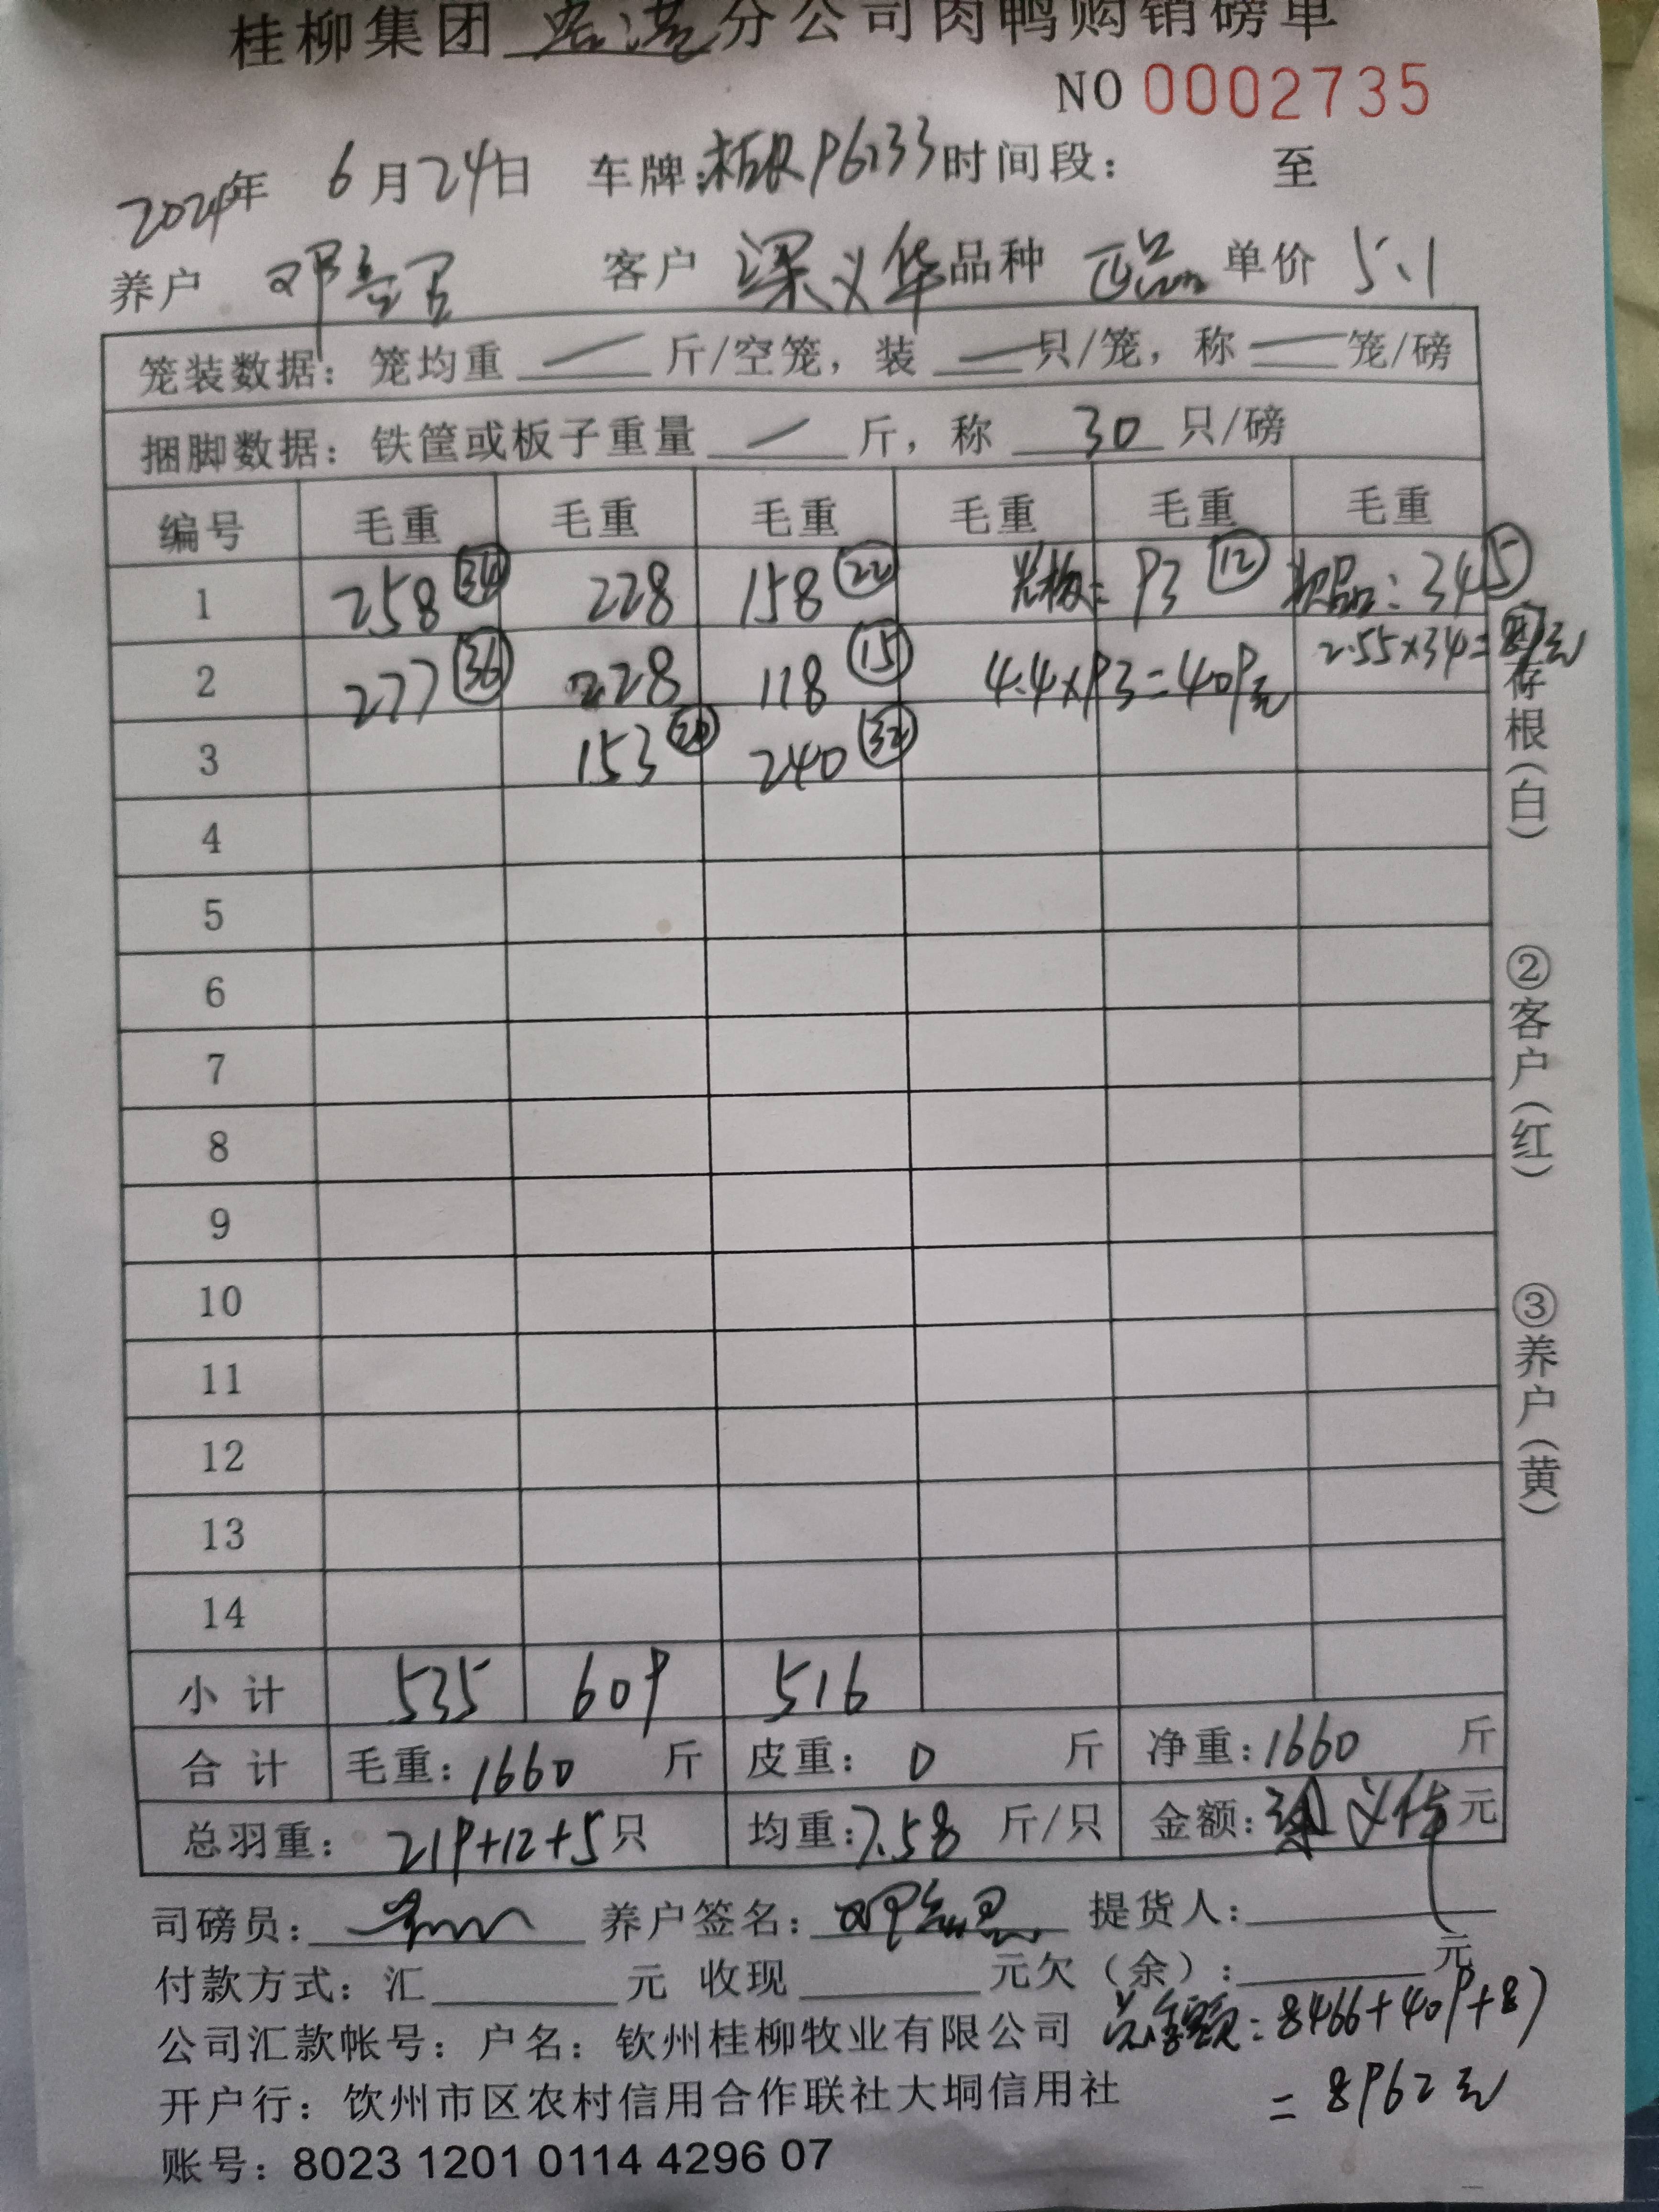 桂柳集团 贵港 分公司肉鸭购销磅单
NO 0002735
2024年 6月24日 车牌: P6133 时间段: 至
养户 邓 客户 梁义华 品种 正品 单价 5.1
笼装数据: 笼均重 — 斤/空笼, 装 — 只/笼, 称 — 笼/磅
捆脚数据: 铁筐或板子重量 — 斤, 称 30 只/磅
编号 毛重 毛重 毛重 毛重 毛重 毛重
1 258 34 228 158 22 93 12 次品: 34 5
2 277 36 228 118 15 4.4×93=409元 2.55×34=87元
3 153 20 240 32
4
5
6
7
8
9
10
11
12
13
14
小 计 535 609 516
合 计 毛重: 1660 斤 皮重: 0 斤 净重: 1660 斤
总羽重: 219+12+5 只 均重: 7.58 斤/只 金额: 梁义华 元
司磅员: 养户签名: 邓 提货人:
付款方式: 汇 元 收现 元欠(余): 元
公司汇款帐号: 户名: 钦州桂柳牧业有限公司 总金额: 8466+409+87
开户行: 钦州市区农村信用合作联社大垌信用社 =8962元
账号: 8023 1201 0114 4296 07
存根(白)
②客户(红)
③养户(黄)